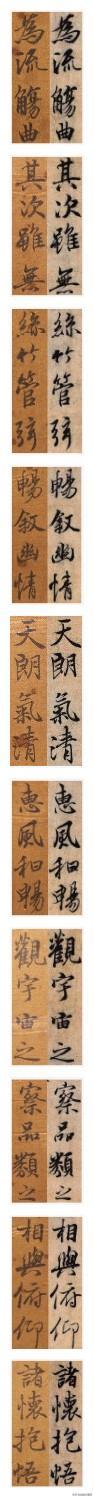 為流觴曲
為流觴曲
其次雖無
其次雖無
絲竹管弦
絲竹管弦
暢叙幽情
暢叙幽情
天朗氣清
天朗氣清
惠風和暢
惠風和暢
觀宇宙之
觀宇宙之
察品類之
察品類之
相與俯仰
相與俯仰
諸懷抱悟
諸懷抱悟